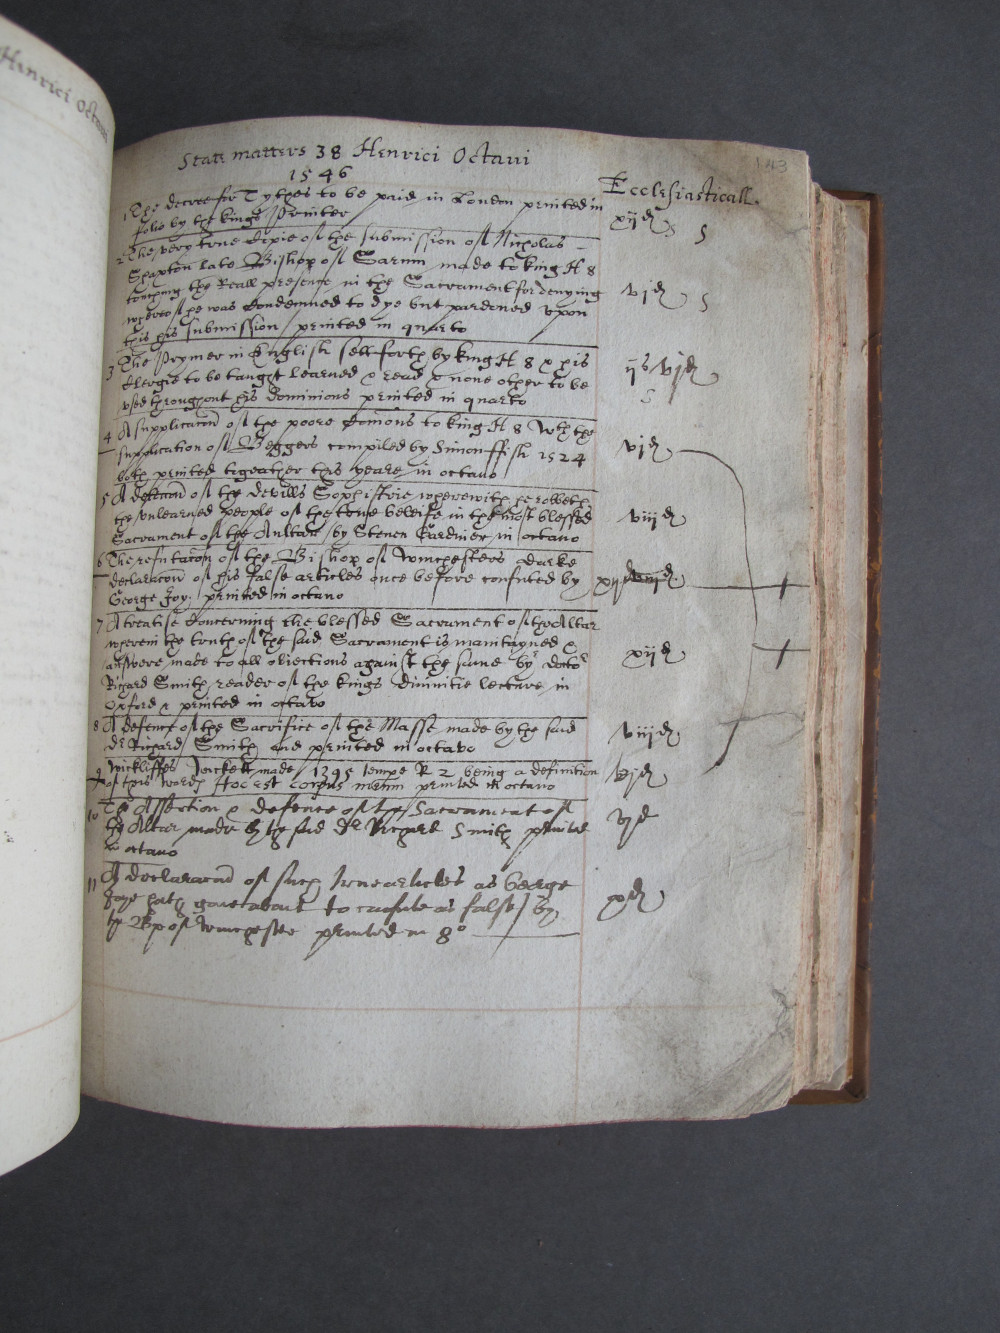 Henrici Octaui
143
State matters 38 Henrici Octaui
1546
Ecclesiasticall.
1 The decree for Tythes to be paid in London printed in
folio by the kings Printer xijd s
2 The very true copie of the submission of Nicholas
Shaxton late Bishop of Sarum made to king H 8
touching the Reall presence in the Sacrament for denying vjd s
whereof he was condemned to dye but pardoned vpon
this his submission printed in quarto
3 The Prymer in English sett forth by king H 8 & his
Clergie to be taught learned & read & none other to be ijs vjd
vsed throughout his dominions printed in quarto s
4 A supplicacon of the poore Comons to king H 8 wth the
supplication of Beggers compiled by Simon ffish 1524 vjd
both printed togeather this yeare in octauo
5 A detecion of the Devills Sophistrie wherewith he robbeth
the vnlearned people of the true beleife in the most blessed viijd
Sacrament of the Aultar by Steuen Gardiner in octauo
6 The refutacon of the Bishop of Winchesters darke
declaracon of his false articles once before confuted by xijd
George Joy: printed in octauo
7 A treatise Concerning the blessed Sacrament of the Altar
wherein the truth of the said Sacrament is maintayned &
answere made to all obiections against the same by doctor xijd
Richard Smith reader of the kings diuinitie lecture in
Oxford & printed in octavo
8 A defence of the Sacrifice of the Masse made by the said
Dr Richard Smith and printed in octavo viijd
9 Wickliffes Wickett made 1395 tempe R 2 being a definition
of this word Hoc est corpus meum printed in octauo vjd
10 The Assertion & defence of the Sacrament of
the Altar made by the said Dr Richard Smith printed vjd
in octauo
11 A declaracon of such true articles as George
Joye hath gone about to confute as false by xd
the Bp of Winchester printed in 8o